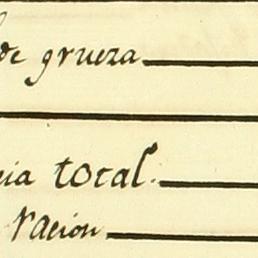 de grueza
cia total.
Racion